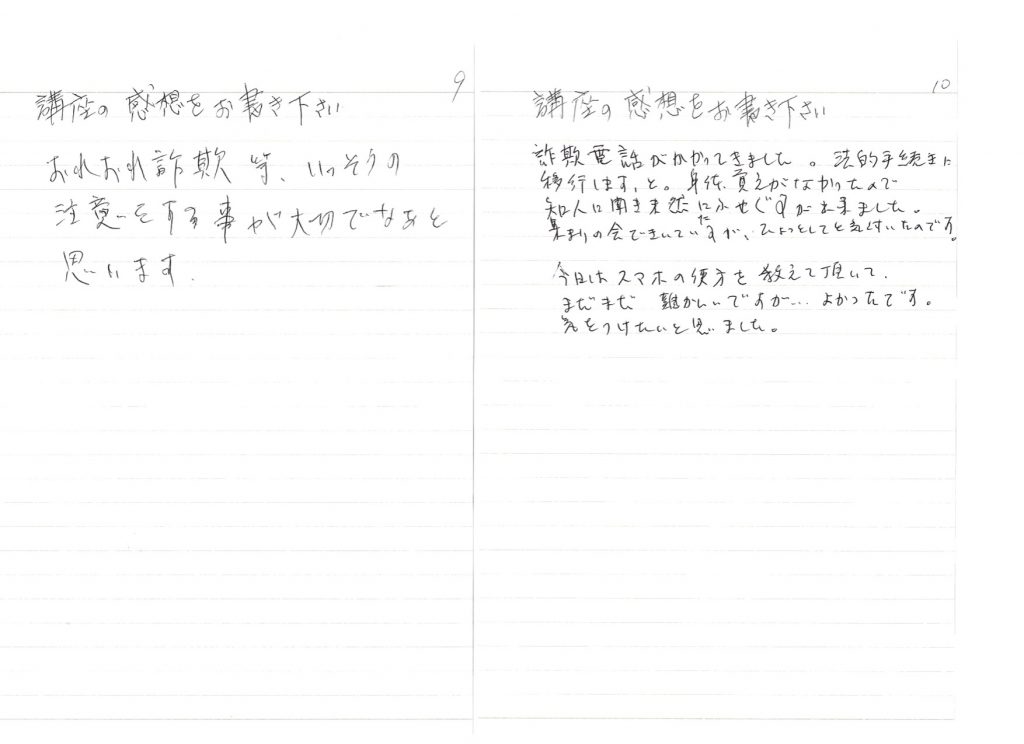 9
講座の感想をお書き下さい
おれおれ詐欺等、いっそうの
注意をする事が大切でなあと
思います.
10
講座の感想をお書き下さい
詐欺電話がかかってきました。法的手続きに
移行します,と。身体、覚えがなかったので
知人に聞き未然にふせぐ事が出来ました。
集まりの会できいていたが、ひょっとしてと気付いたのです。
今日はスマホの使方を教えて頂いて、
まだまだ 難かしいですが… よかったです。
気をつけたいと思いました。